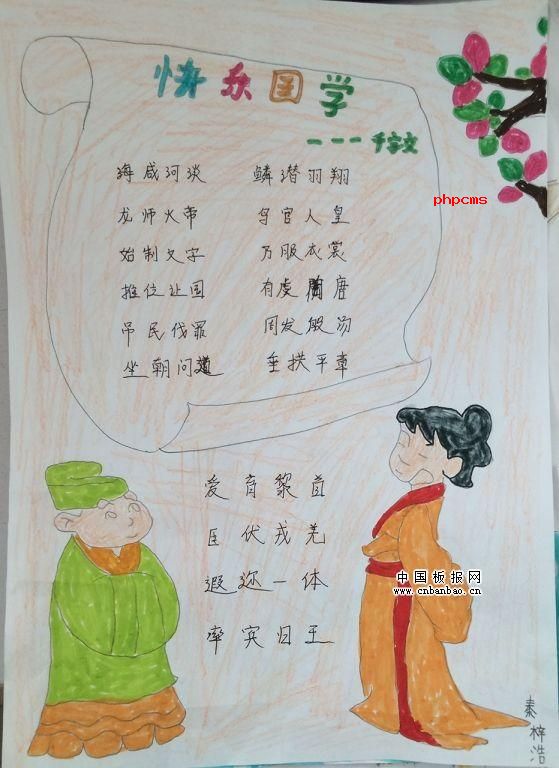 快乐国学
———千字文
海咸河淡 鳞潜羽翔
龙师火帝 鸟官人皇
始制文字 乃服衣裳
推位让国 有虞陶唐
吊民伐罪 周发殷汤
坐朝问道 垂拱平章
爱育黎首
臣伏戎羌
遐迩一体
率宾归王
秦梓浩
phpcms
中国板报网
www.cnbanbao.cn